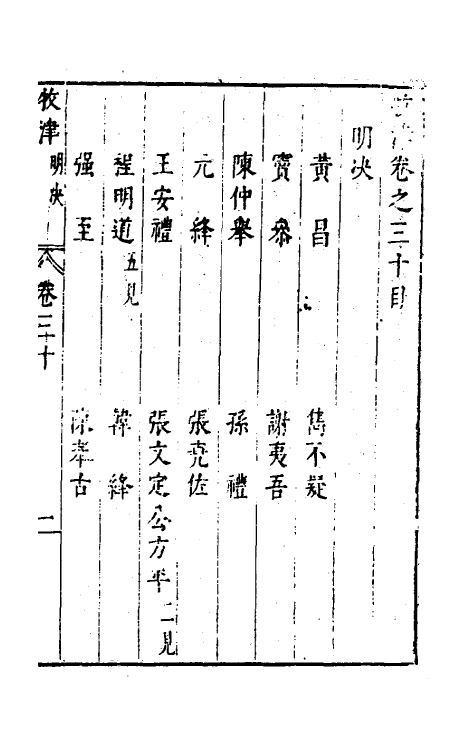 牧津卷之三十目
明决
黃昌 雋不疑
竇參 謝夷吾
陳仲舉 孫禮
元絳 張堯佐
王安禮 張文定公方平二見
程明道五見 韓絳
强至 陳奉古
牧津 明决 卷三十 二